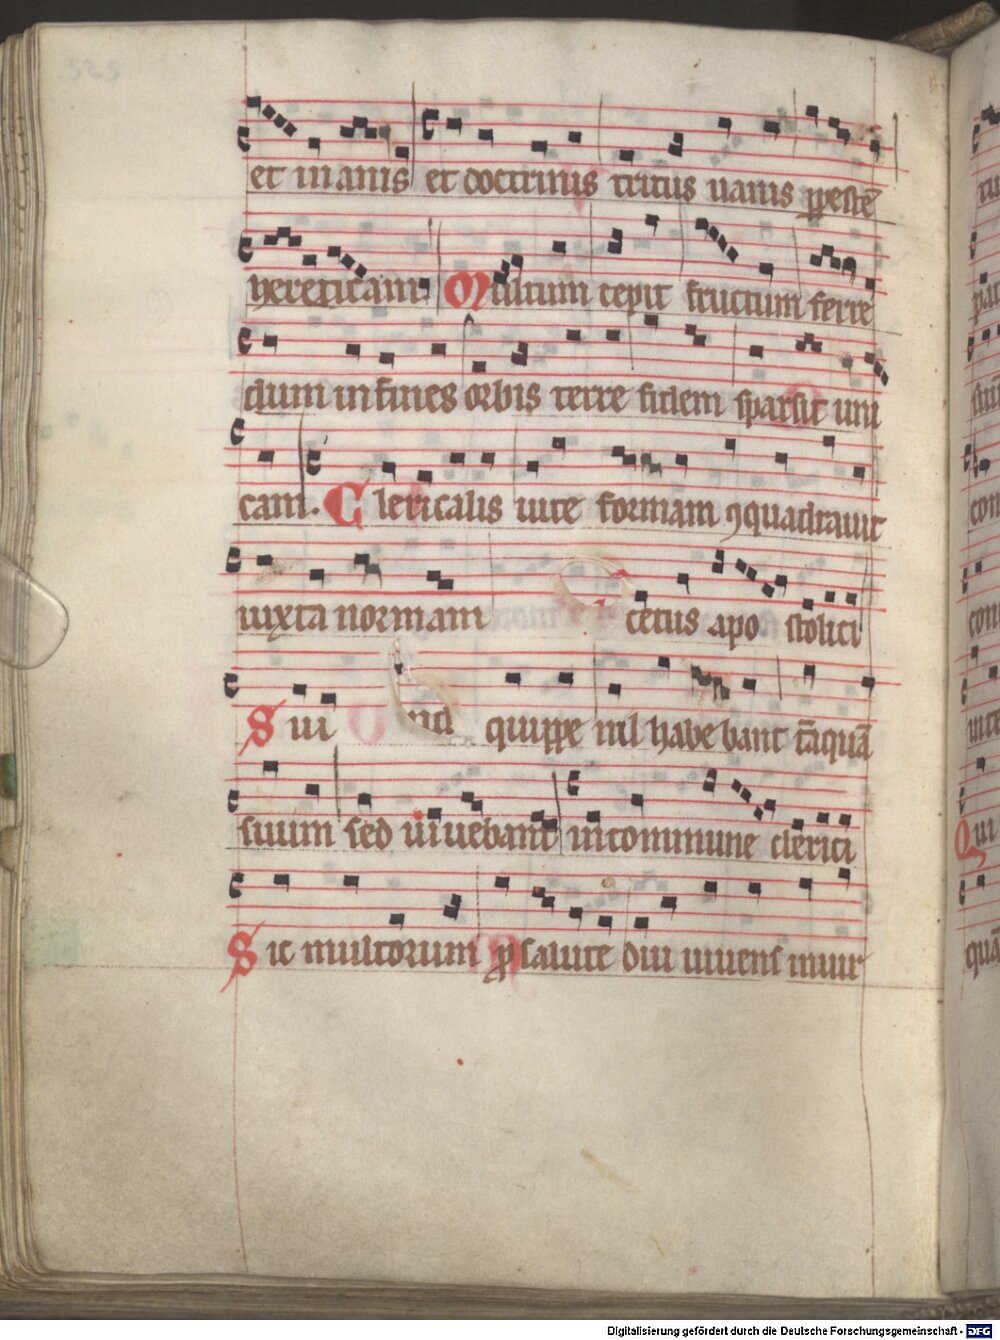 et inanis et doctrinis tritus uanis ꝑpestē
hereticam Multum cepit fructum ferre
dum in fines orbis terre fidem sparsit uni
cam. Clericalis uite formam ꝯquadrauit
iuxta normam cetus apo stolici
Sui quippe nil habe bant tāquā
suum sed uiuebant incommune clerici
Sic multorum ꝓ salute diu uiuens
Digitalisierung gefördert durch die Deutsche Forschungsgemeinschaft - DFG